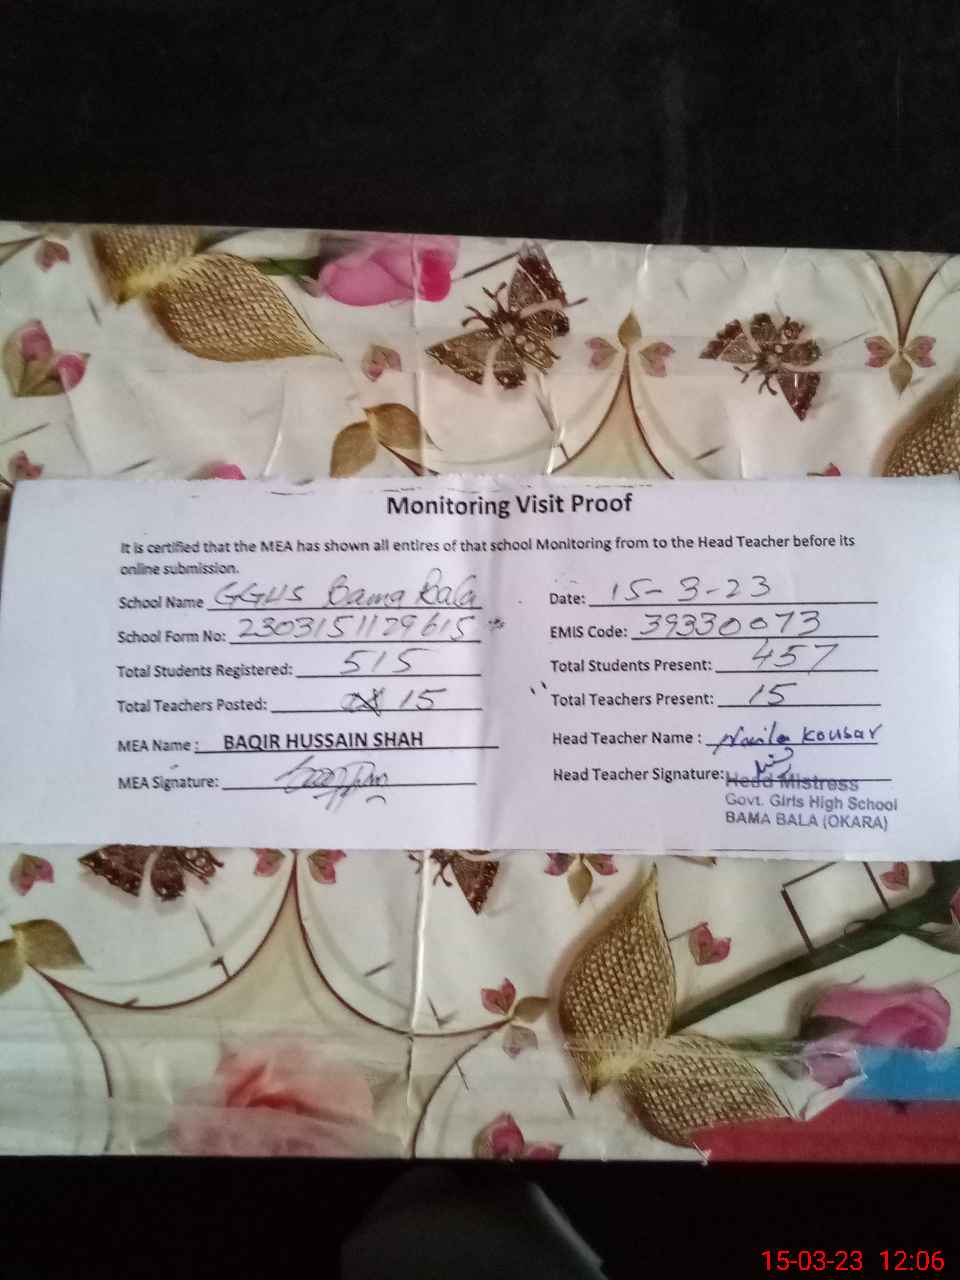 Monitoring Visit Proof
It is certified that the MEA has shown all entires of that school Monitoring from to the Head Teacher before its
online submission.
School Name GGHS Bama Bala
Date: 15-3-23
School Form No: 2303151129615
EMIS Code: 39330073
Total Students Registered: 515
Total Students Present: 457
Total Teachers Posted: 15
Total Teachers Present: 15
MEA Name : BAQIR HUSSAIN SHAH
Head Teacher Name : Naila Kousar
MEA Signature:
Head Teacher Signature:
Head Mistress
Govt. Girls High School
BAMA BALA (OKARA)
15-03-23 12:06